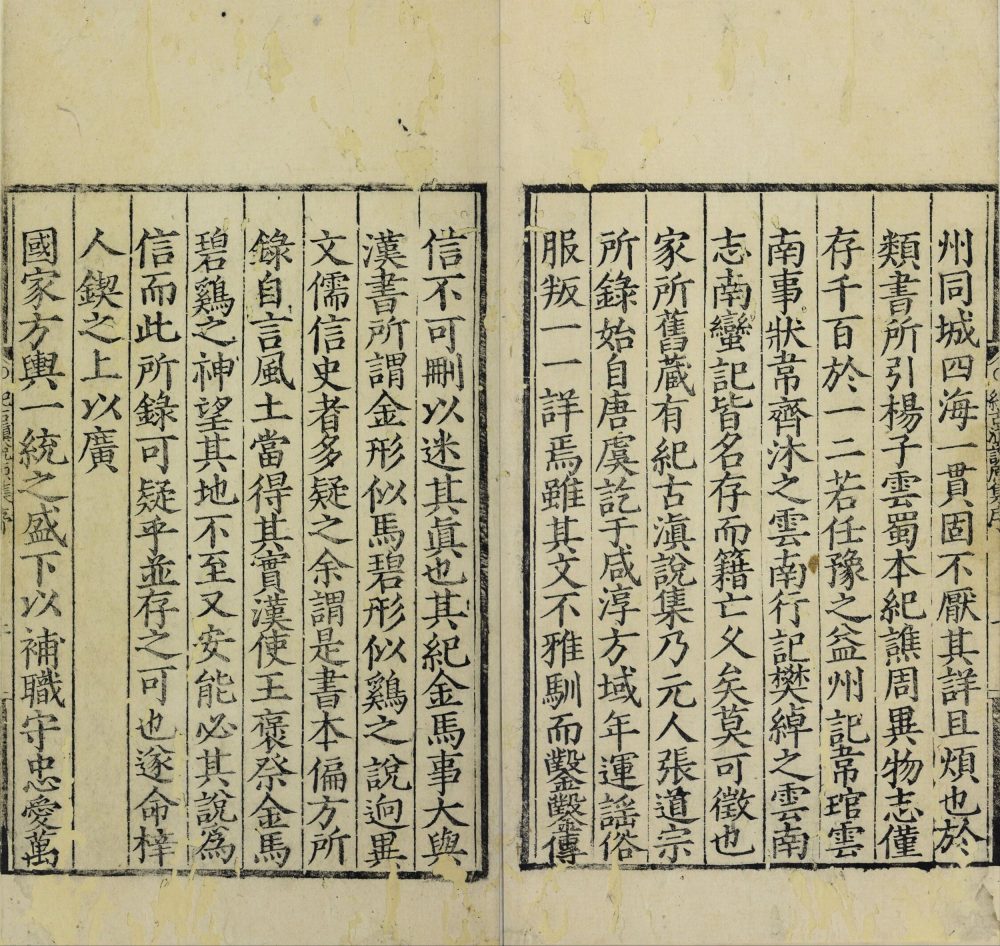 州同城四海一貫固不厭其詳且煩也於
類書所引楊子雲蜀本紀譙周異物志僅
存千百於一二若任豫之益州記韋琯雲
南事狀韋齊沐之雲南行記樊綽之雲南
志南蠻記皆名存而籍亡久矣莫可徵也
家所舊藏有紀古滇說集乃元人張道宗
所錄始自唐虞訖于咸淳方域年運謡俗
服叛一一詳焉雖其文不雅馴而鑿鑿傳
信不可刪以迷其眞也其紀金馬事大與
漢書所謂金形似馬碧形似鷄之說逈異
文儒信史者多疑之余謂是書本偏方所
錄自言風土當得其實漢使王褒祭金馬
碧鷄之神望其地不至又安能必其說為
信而此所錄可疑乎並存之可也遂命梓
人鍥之上以廣
國家方輿一統之盛下以補職守忠愛萬